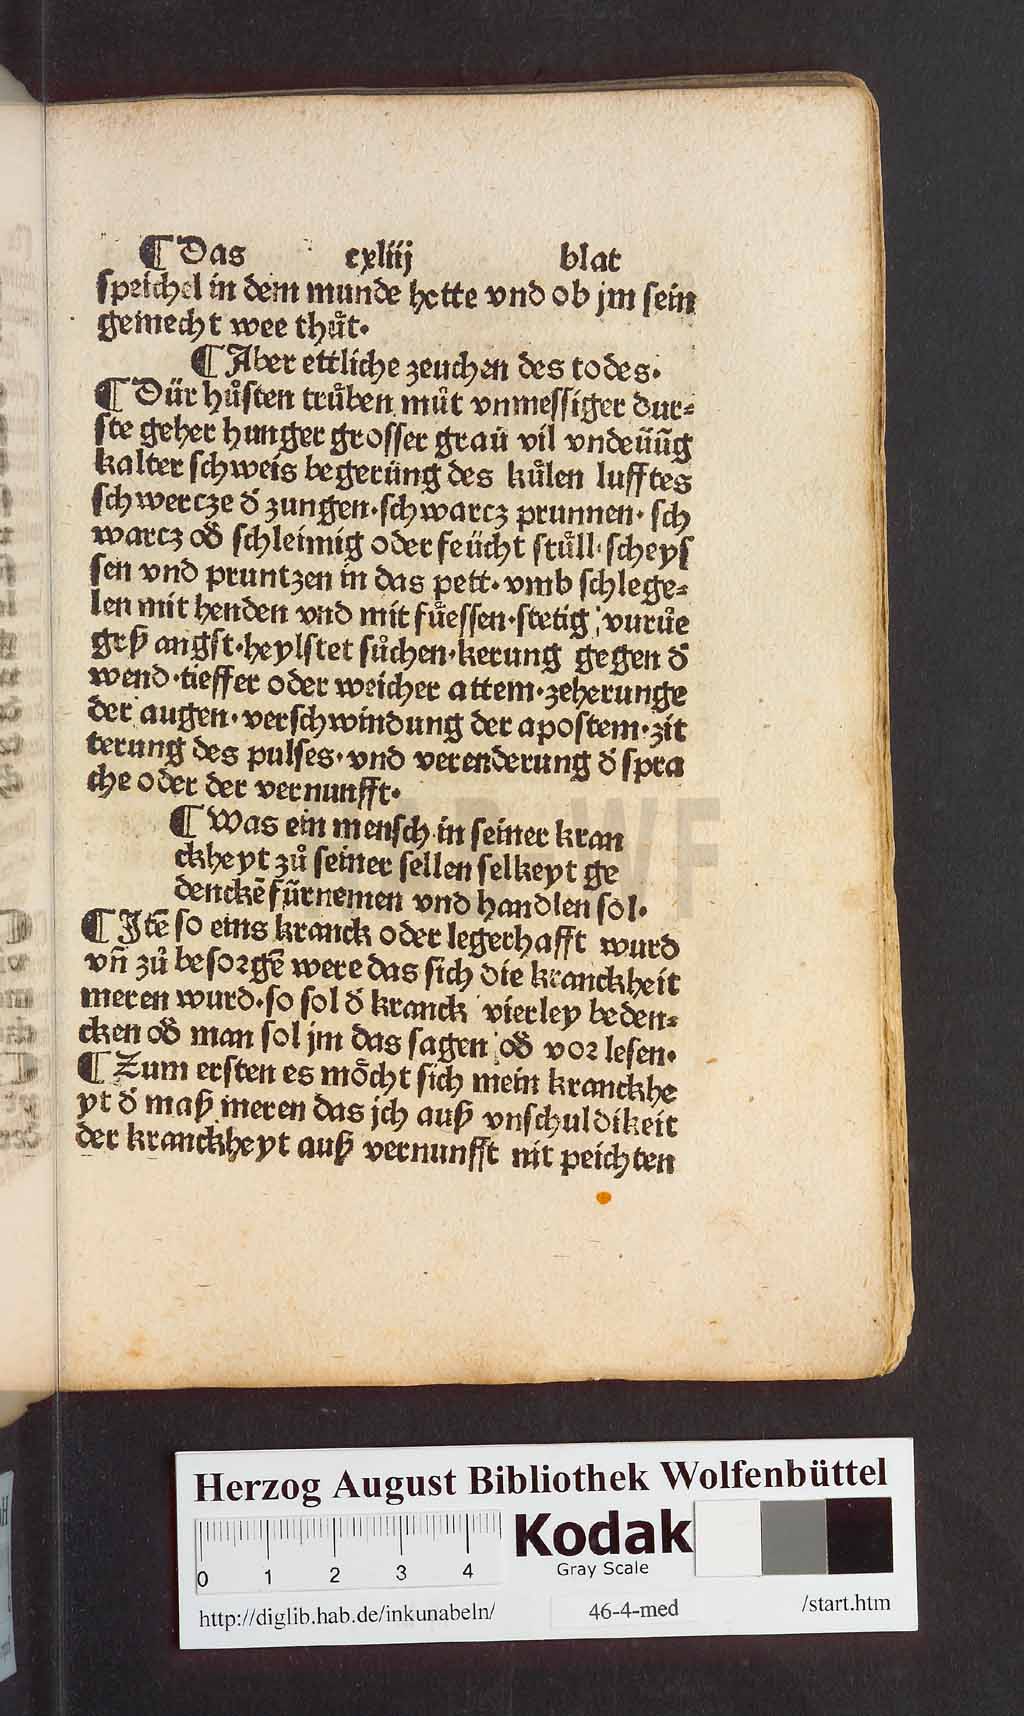 ¶ Das cxliij blat
speichel in dem munde hette vnd ob jm sein
gemecht wee thuͦt.
¶ Aber ettliche zeuchen des todes.
¶ Dür huͦsten truͤben muͦt vnmessiger dur⸗
ste geher hunger grosser graü vil vndeüüg
kalter schweis begerüng des kuͤlen lufftes
schwercze d̕ zungen.schwarcz prunnen. sch
warcz od̕ schleimig oder feücht stuͤll.scheys
sen vnd pruntzen in das pett. vmb schlege⸗
len mit henden vnd mit fuͤessen.stetig vuruͦe
grß angst.heylstet suͦchen.kerung gegen d̕
wend.tieffer oder weicher attem.zeherunge
der augen.verschwindung der apostem.zit
terung des pulses.vnd verenderung d̕ spra
che oder der vernunfft.
¶ Was ein mensch in seiner kran
ckheyt zuͦ seiner sellen selkeyt ge
denckē fürnemen vnd handlen sol.
¶ Jtē so eins kranck oder legerhafft wurd
vn̄ zuͦ besorgē were das sich die kranckheit
meren wurd.so sol d̕ kranck vierley beden⸗
cken od̕ man sol jm das sagen od̕ vor lesen.
¶ Zum ersten es moͤcht sich mein kranckhe
yt d̕ maß meren das jch auß vnschuldikeit
der kranckheyt auß vernunfft nit peichten
HAB WF
Herzog August Bibliothek Wolfenbüttel
0 1 2 3 4
Kodak
Gray Scale
http://diglib.hab.de/inkunabeln/ 46-4-med /start.htm